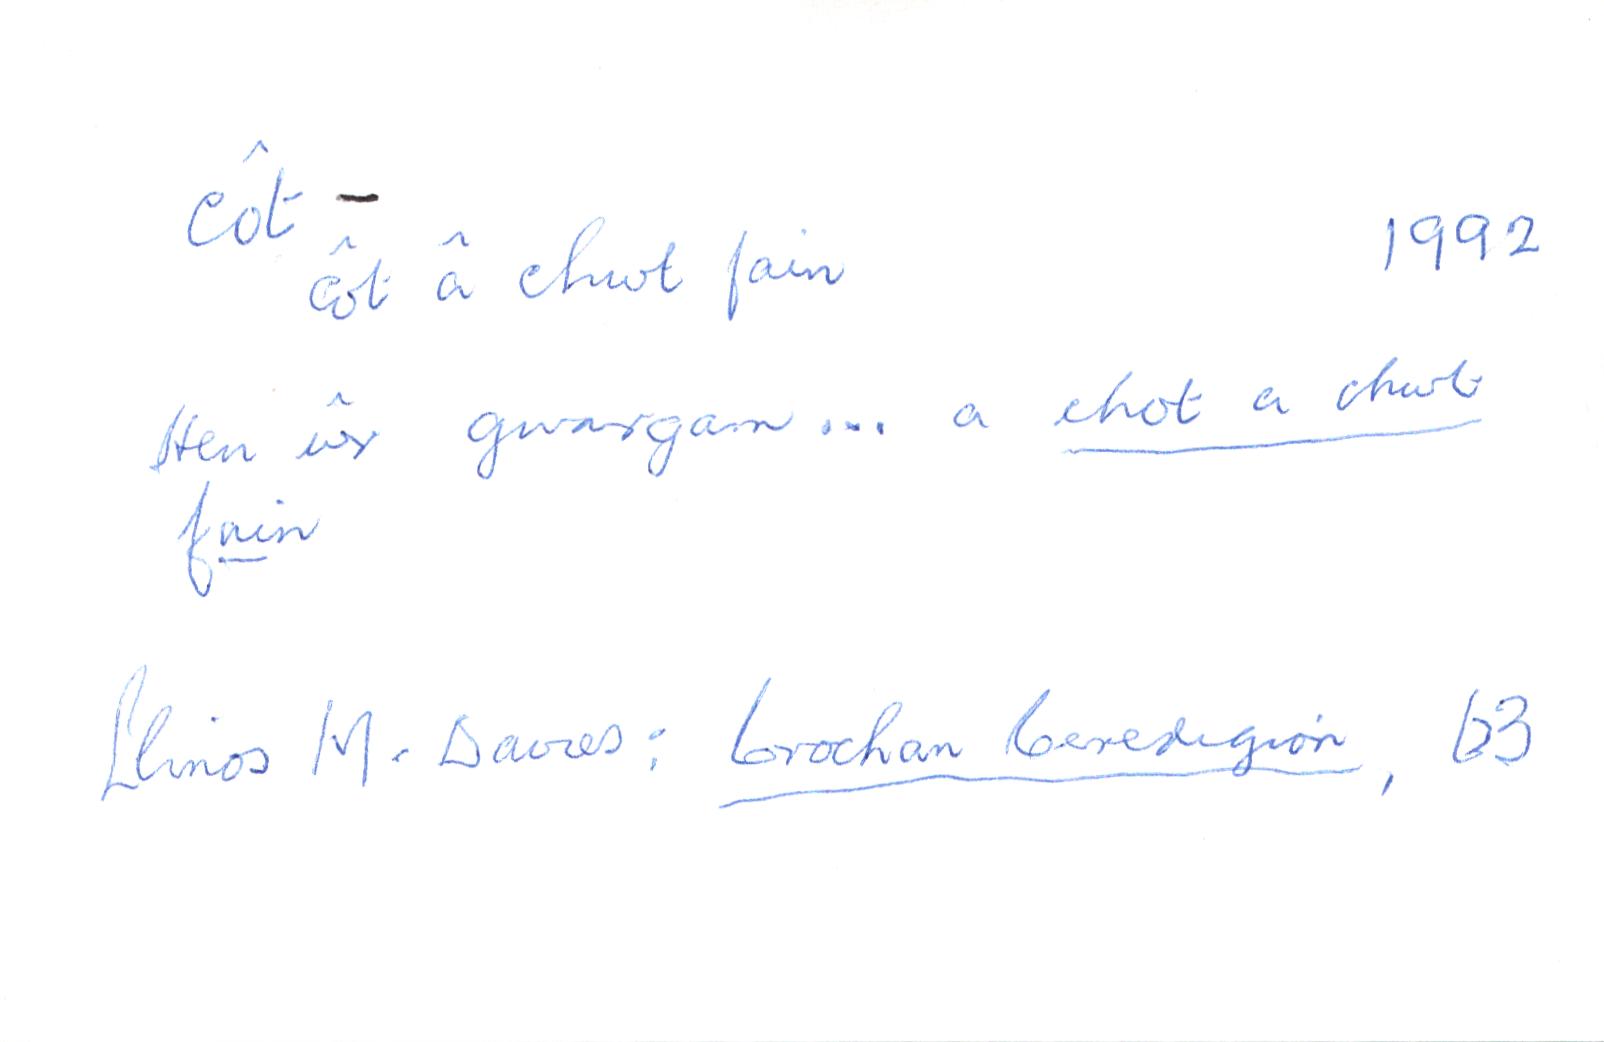 côt –
côt â chwt fain 1992
Hen ŵr gwargam... a chot a chwt
fain
Llinos M. Davies: Crochan Ceredigion, 63